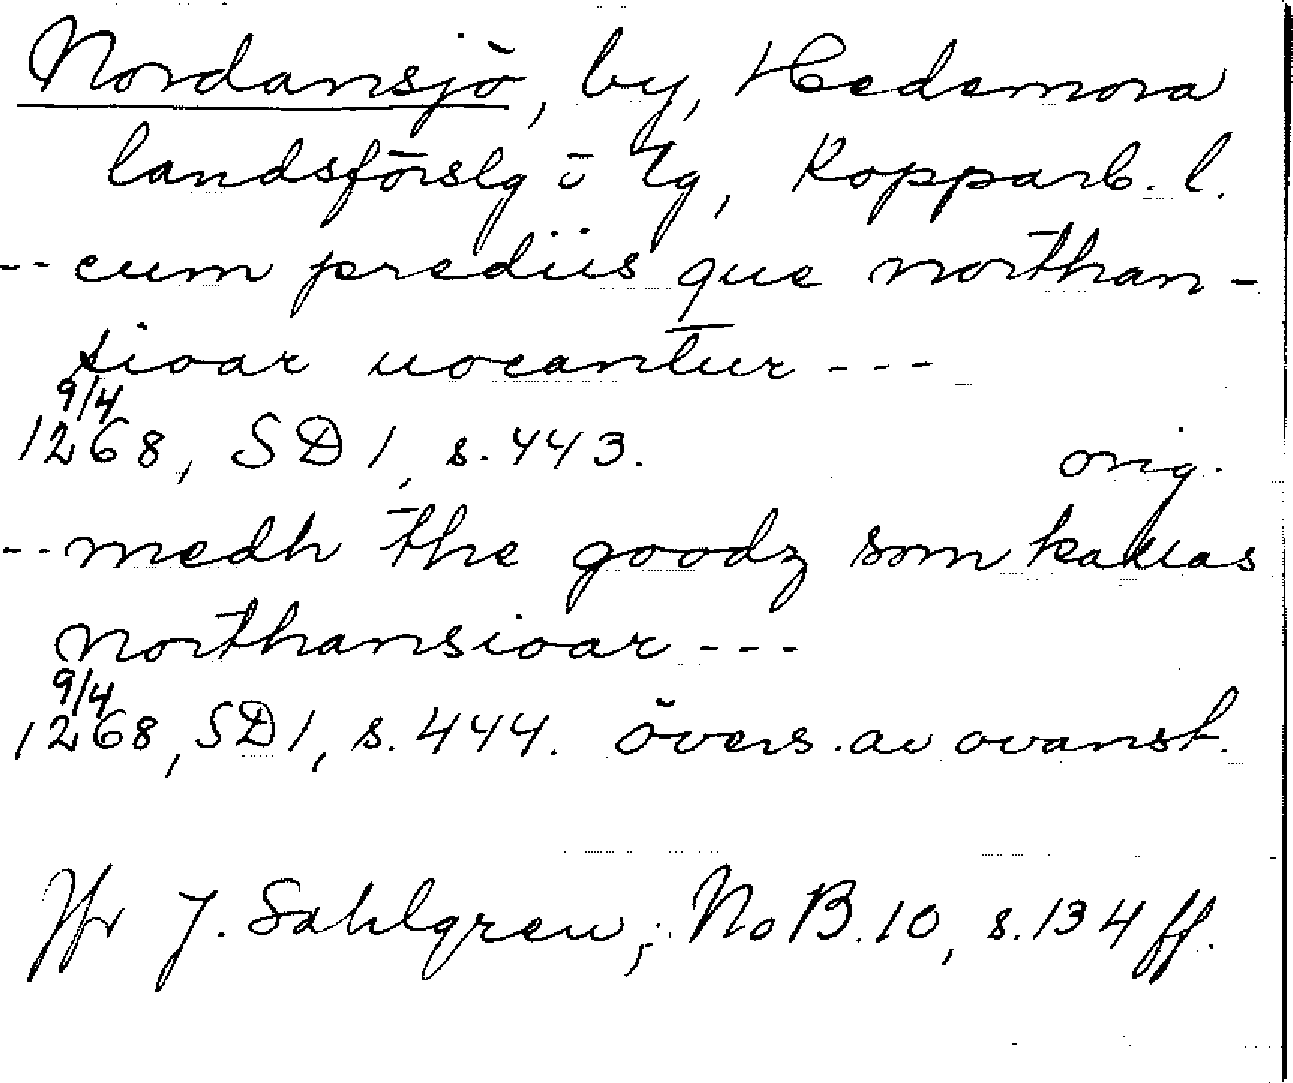 Nordansjö, by, Hedemora
landsförslg o tg, Kopparb. l.
-- cum prediis que northan-
sioar uocantur ---
9/4
1268, SD 1, s. 443. orig.
-- medh the goodz som kallas
northansioar ---
9/4
1268, SD 1, s. 444. övers. av ovanst.
Jfr J. Sahlgren, NoB. 10, s. 134 ff.